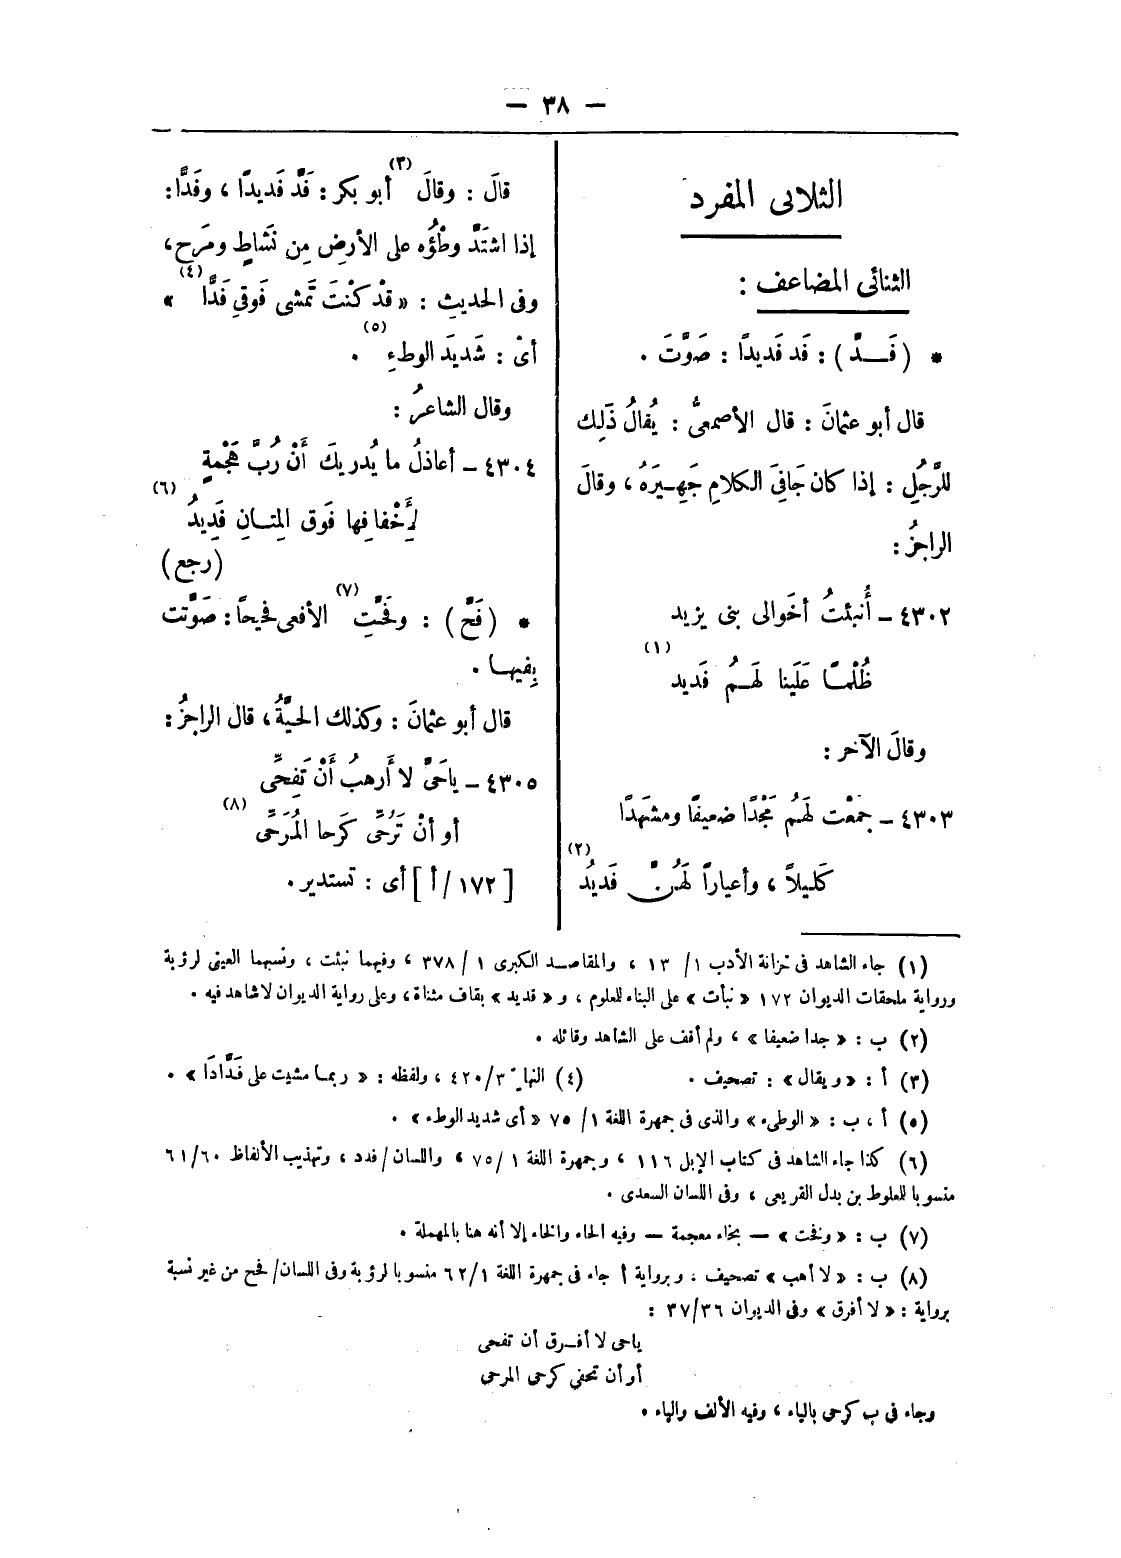 — ٣٨ —
الثلاثى المفرد
الثنائى المضاعف :
* ( فَـــدَّ ) : فَد فَديدًا : صَوَّتَ .
قال أبو عثمانَ : قال الأصمعىُّ : يُقالُ ذَلِك
للرَّجُلِ : إذا كان جَافِىَ الكلامِ جَهِـيَرهُ ، وقالَ
الراجزُ :
٤٣٠٢ – أُنبئتُ أخَوالى بنى يزيد
ظُلْمـًـا عَلَينا لَهـــمُ فَديد (١)
وقالَ الآخر :
٤٣٠٣ – جمعْت لَهَمُ مَجْدًا ضعيفًا ومشهَدًا
كَليلاً ، وأعياراً لَهُنَّ فَديدُ (٢)
قالَ : وقالَ (٣) أبو بكر : فَدَّ فَديدًا ، وفَدًّا :
إذا اشتَدَّ وطْؤُه على الأرضِ مِن نَشَاطٍ ومَرَحٍ ،
وفى الحديثِ : « قدْ كنْتَ تَمشى فَوقىِ فَدًّا (٤) »
أىْ : شَديَد الوطءِ (٥) .
وقال الشاعرُ :
٤٣٠٤ – أعاذلُ ما يُدريكَ أَنْ رُبَّ هَجْمةٍ
لِأَخْفافِها فَوق المِتـانِ فَدِيدُ (٦)
(رجع)
* ( فَحَّ ) : وفَحَّتِ (٧) الأفعى فحيحًا : صَوَّتت
بِفيهـا .
قال أبو عثمانَ : وكذلك الحيَّةُ ، قال الراجزُ :
٤٣٠٥ – ياحَىَّ لا أَرهبُ أَنْ تَفِحِّى
أو أنْ تَرُحِّى كَرحا المُرَحِّى (٨)
[ ١٧٢ / أ ] أى : تستدير .
(١) جاء الشاهد فى خزانة الأدب ١ / ١٣ ، والمقاصـد الكبرى ١ / ٣٧٨ ، وفيهما نبئت ، ونسبهما العينى لرؤبة
ورواية ملحقات الديوان ١٧٢ « نبأت » على البناء للعلوم ، و « قديد » بقاف مثناة ، وعلى رواية الديوان لا شاهد فيه .
(٢) ب : « جدا ضعيفا » ، ولم أقف على الشاهد وقائله .
(٣) أ : « ويقال » : تصحيف . (٤) ٣ / ٤٢٠ ، ولفظه : « ربمـا مشيت على فَدَّادًا » .
(٥) أ ، ب : « الوطىء » والذى فى جمهرة اللغة ١ / ٧٥ « أى شديد الوطء » .
(٦) كذا جاء الشاهد فى كتاب الإبل ١١٦ ، وجمهرة اللغة ١ / ٧٥ ، واللسان / فدد ، وتهذيب الألفاظ ٦٠ / ٦١
منسوبا للعلوط بن بدل القريعى ، وفى اللسان السعدى .
(٧) ب : « ونفخت » — بخاء معجمة — وفيه الحاء والخاء إلا أنه هنا بالمهملة .
(٨) ب : « لا أهب » تصحيف ، وبرواية أ جاء فى جمهرة اللغة ١ / ٦٢ منسوبا لرؤبة وفى اللسان / فحح من غير نسبة
برواية : « لا أفرق » وفى الديوان ٣٦ / ٣٧ :
ياحى لا أفـرق أن تفحى
أو أن تحفى كرحى المرحى
وجاء فى ب كرحى بالياء ، وفيه الألف والياء .